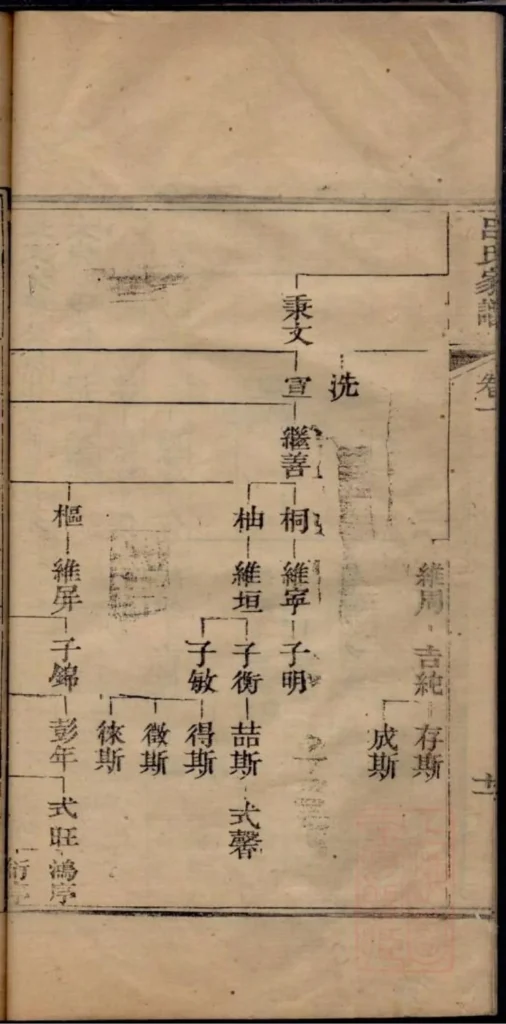 呂氏家譜
卷一
十一
維周
吉純
存斯
成斯
洗
秉文
宣
繼善
桐
維寧
子明
柚
維垣
子衡
喆斯
式馨
子敏
得斯
微斯
徠斯
樞
維屏
子錦
彭年
式旺
鴻序
衍序